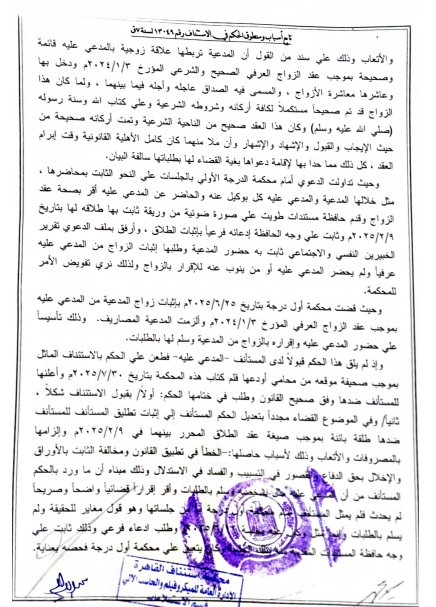 تابع أسباب ومنطوق الحكم في الاستئناف رقم ١٣٠٤٩ لسنة ٢ق
والأتعاب وذلك علي سند من القول أن المدعية تربطها علاقة زوجية بالمدعي عليه قائمة
وصحيحة بموجب عقد الزواج العرفي الصحيح والشرعي المؤرخ ٢٠٢٤/١/٣م ودخل بها
وعاشرها معاشرة الأزواج ، والمسمى فيه الصداق عاجله وأجله فيما بينهما ، ولما كان هذا
الزواج قد تم صحيحاً مستكملاً لكافة أركانه وشروطه الشرعية وعلي كتاب الله وسنة رسوله
(صلي الله عليه وسلم) وكان هذا العقد صحيح من الناحية الشرعية وتمت أركانه صحيحة من
حيث الإيجاب والقبول والإشهاد والإشهار وأن ملا منهما كان كامل الأهلية القانونية وقت إبرام
العقد ، كل ذلك مما حدا بها لإقامة دعواها بغية القضاء لها بطلباتها سالفة البيان.
وحيث تداولت الدعوي أمام محكمة الدرجة الأولي بالجلسات علي النحو الثابت بمحاضرها ،
مثل خلالها المدعية والمدعي عليه كل بوكيل عنه والحاضر عن المدعي عليه أقر بصحة عقد
الزواج وقدم حافظة مستندات طويت علي صورة ضوئية من وريقة ثابت بها طلاقه لها بتاريخ
٢٠٢٥/٢/٩م وثابت علي وجه الحافظة إدعاءه فرعياً بإثبات الطلاق ، وأرفق بملف الدعوي تقرير
الخبيرين النفسي والاجتماعي ثابت به حضور المدعية وطلبها إثبات الزواج من المدعي عليه
عرفياً ولم يحضر المدعي عليه أو من ينوب عنه للإقرار بالزواج ولذلك نري تفويض الأمر
للمحكمة.
وحيث قضت محكمة أول درجة بتاريخ ٢٠٢٥/٦/٢٥م بإثبات زواج المدعية من المدعي عليه
بموجب عقد الزواج العرفي المؤرخ ٢٠٢٤/١/٣م وألزمت المدعية المصاريف. وذلك تأسيساً
علي حضور المدعي عليه وإقراره بالزواج من المدعية وسلم لها بالطلبات.
وإذ لم يلق هذا الحكم قبولاً لدى المستأنف -المدعي عليه- فطعن علي الحكم بالاستئناف الماثل
بموجب صحيفة موقعه من محامي أودعها قلم كتاب هذه المحكمة بتاريخ ٢٠٢٥/٧/٣٠م وأعلنها
للمستأنف ضدها وفق صحيح القانون وطلب في ختامها الحكم: أولاً/ بقبول الاستئناف شكلاً ،
ثانياً/ وفي الموضوع القضاء مجدداً بتعديل الحكم المستأنف إلي إثبات تطليق المستأنف للمستأنف
ضدها طلقة بائنة بموجب صيغة عقد الطلاق المحرر بينهما في ٢٠٢٥/٢/٩م وإلزامها
بالمصروفات والأتعاب وذلك لأسباب حاصلها:-الخطأ في تطبيق القانون ومخالفة الثابت بالأوراق
والإخلال بحق الدفاع والقصور في التسبيب والفساد في الاستدلال وذلك مبناه أن ما ورد بالحكم
المستأنف من أن المدعي عليه مثل بشخصه وسلم بالطلبات وأقر إقراراً قضائياً واضحاً وصريحاً
لم يحدث فلم يمثل المستأنف أول درجة جلساتها وهو قول مغاير للحقيقة ولم
يسلم بالطلبات وطلب ادعاء فرعي وذلك ثابت علي
وجه حافظة المستندات علي محكمة أول درجة فحصه بعناية.
محكمة استئناف القاهرة
الإدارة العامة للميكروفيلم والحاسب الآلي